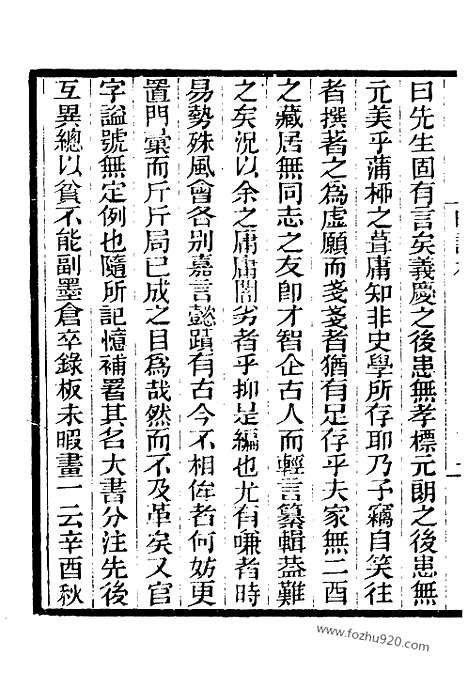 曰先生固有言矣義慶之後患無孝標元朗之後患無
元美乎蒲桺之葺庸知非史學所存耶乃予竊自笑往
者撰著之爲虛願而戔戔者猶有足存乎夫家無二酉
之藏居無同志之友卽才智企古人而輕言纂輯葢難
之矣況以余之庸庸闇劣者乎抑是編也尤有嗛者時
易勢殊風會各別嘉言懿蹟有古今不相侔者何妨更
置門彙而斤斤局已成之目爲哉然而不及革矣又官
字謚號無定例也隨所記憶補署其名大書分注先後
互異總以貧不能副墨倉卒錄板未暇畫一云辛酉秋
www.fozhu920.com